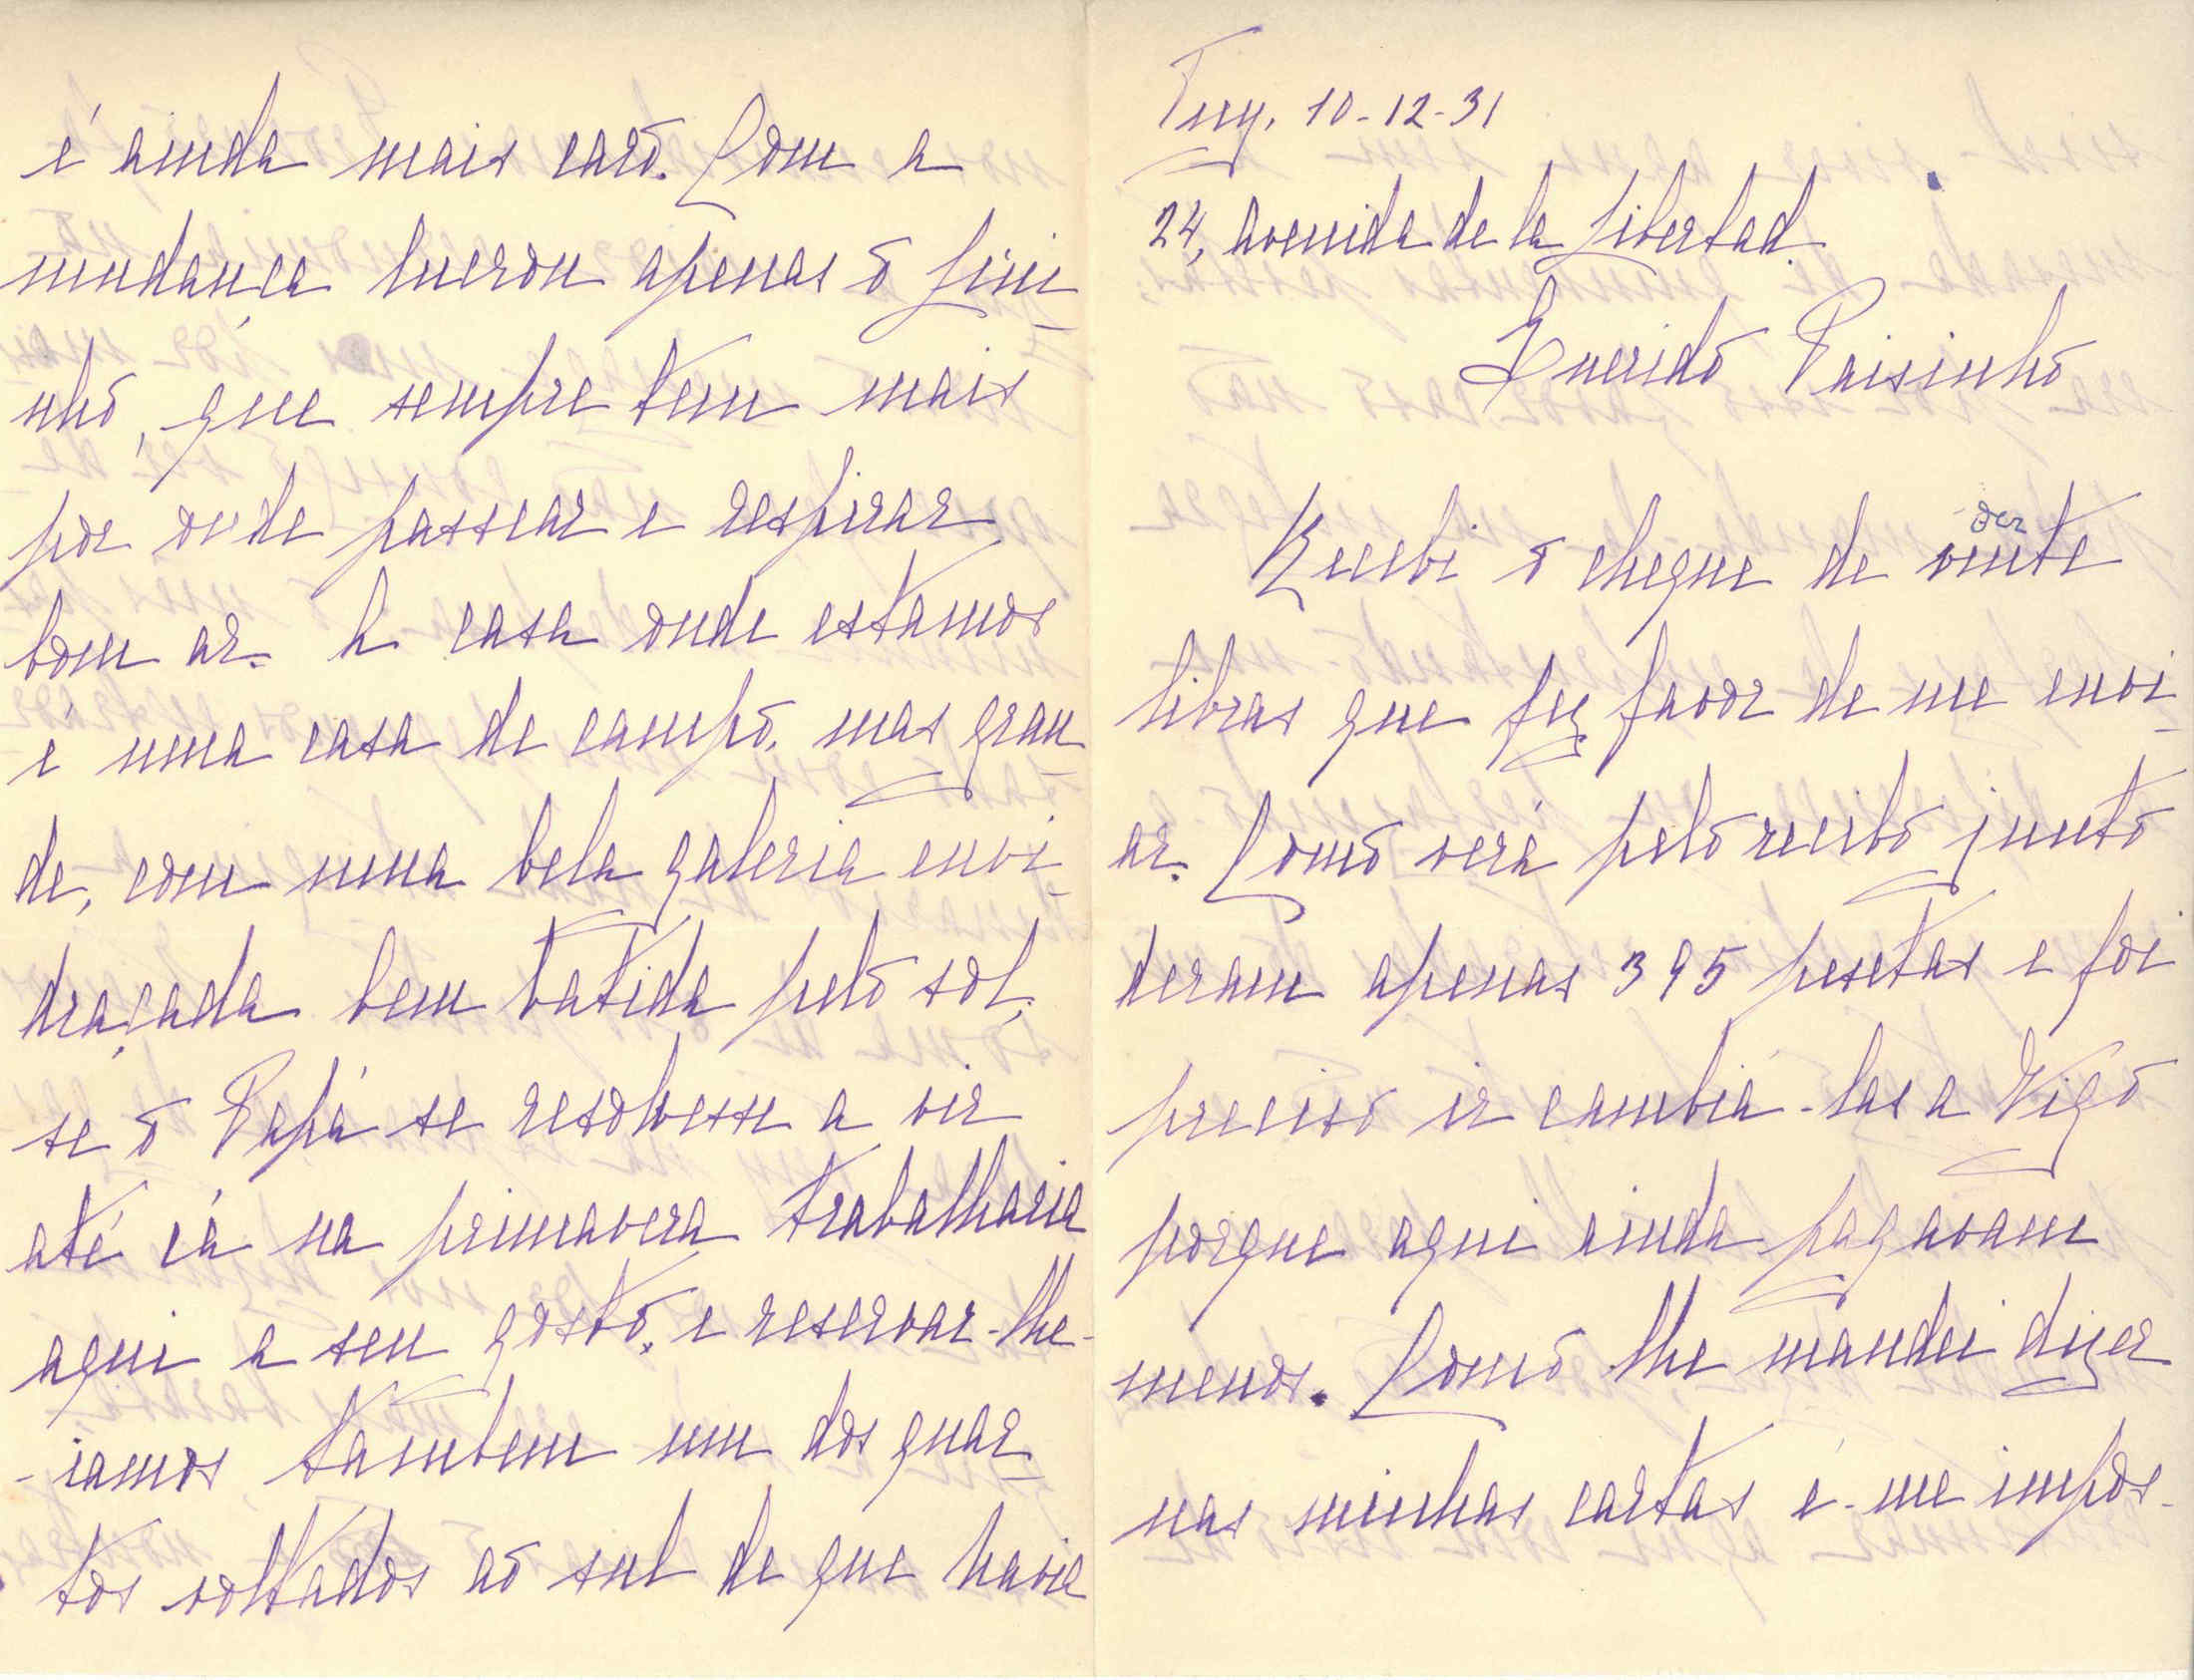 Tuy, 10-12-31
24, Avenida de la Libertad.
Querido Paisinho
Recebi o cheque de vinte
dez
libras que fez favor de me envi-
ar. Como verá pelo recibo junto
deram apenas 395 pesetas e foi
preciso ir cambiá-las a Vigo
porque aqui ainda pagavam
menos. Como lhe mandei dizer
nas minhas cartas é-me impos-
é ainda mais caro. Com a
mudança lucrou apenas o Nini-
nho, que sempre tem mais
por onde passear e respirar
bom ar. A casa onde estamos
é uma casa de campo, mas gran-
de, com uma bela galeria envi-
draçada bem batida pelo sol;
se o Papá se resolvesse a vir
até cá na primavera trabalharia
aqui a seu gosto, e reservar-lhe-
-iamos tambem um dos quar-
tos voltados ao sul de que havia